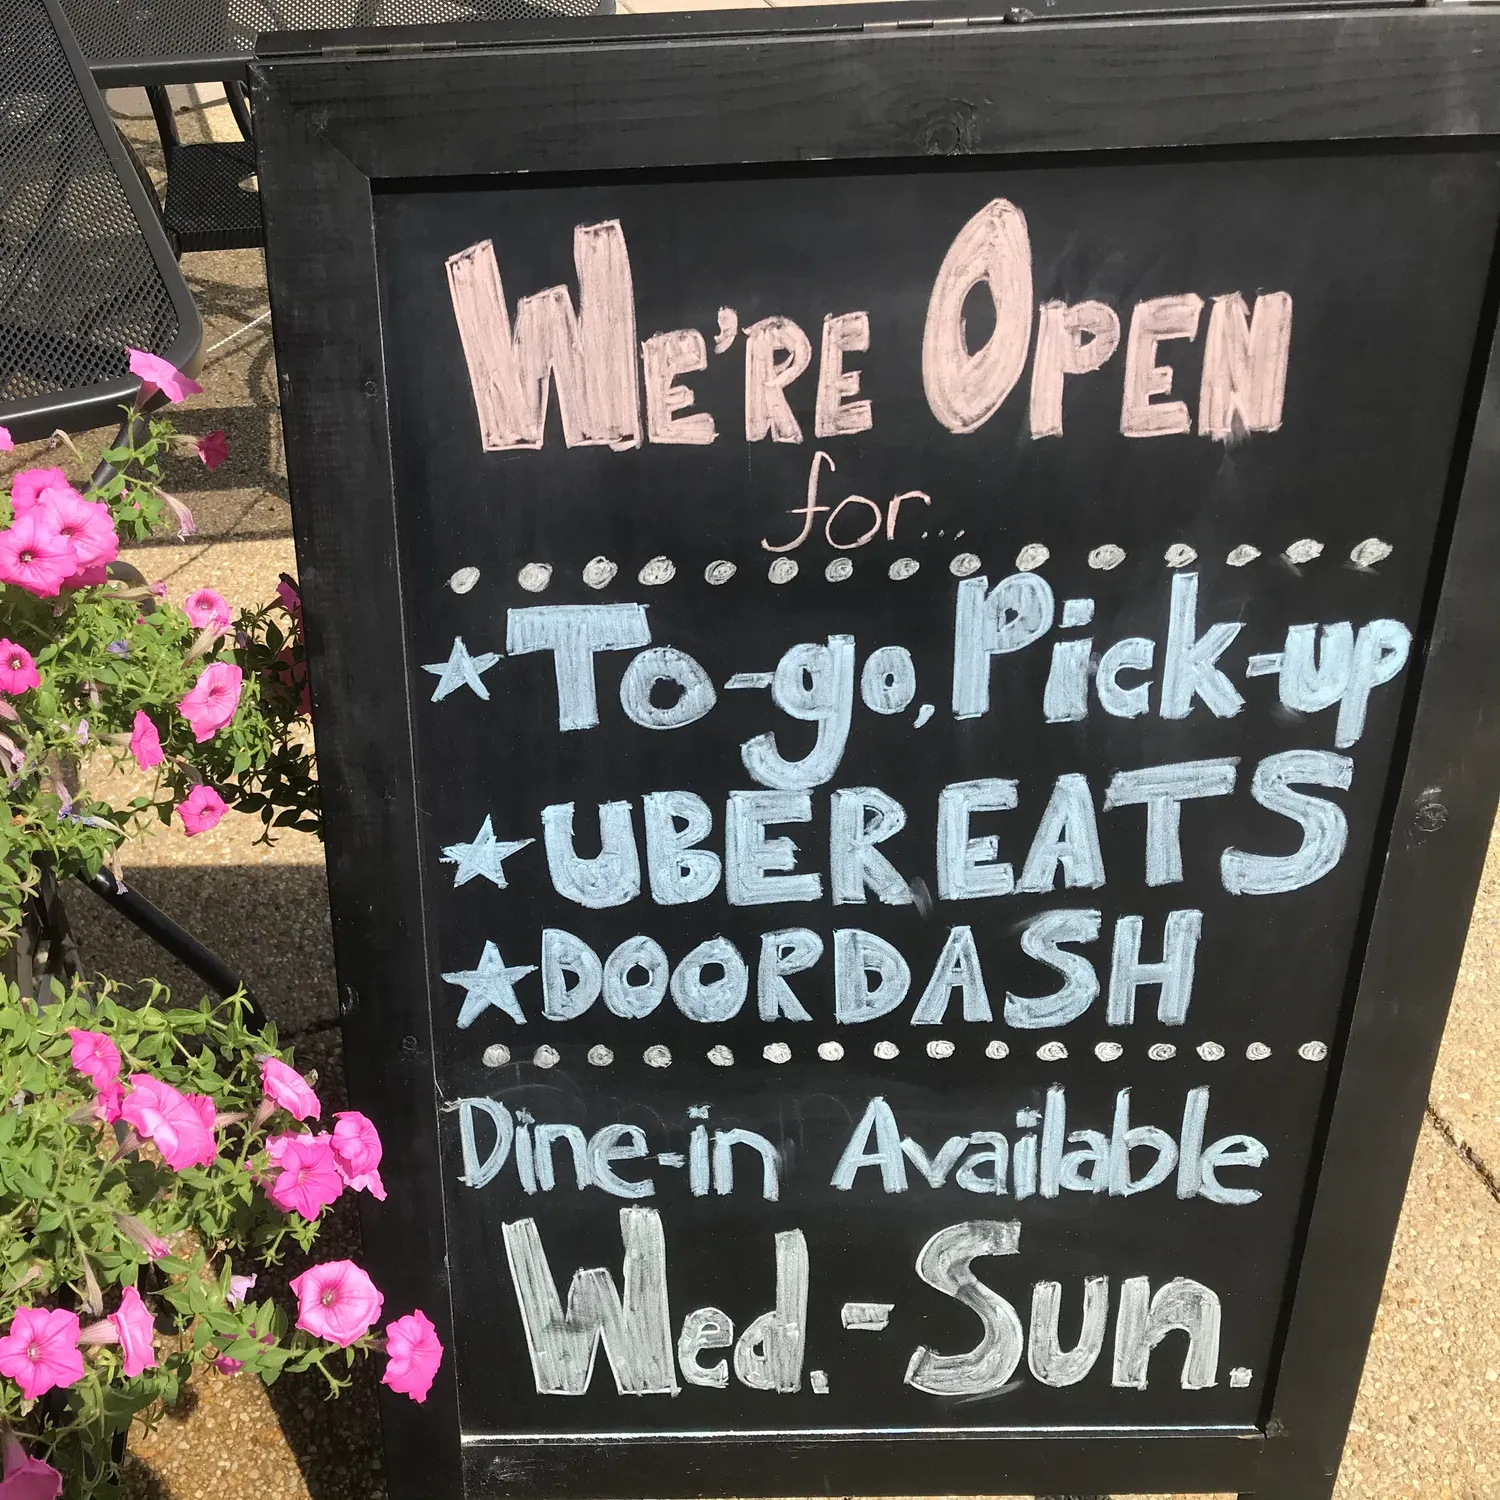 WE'RE OPEN
for...
To-go, Pick-up
UBEREATS
DOORDASH
Dine-in Available
Wed. - Sun.